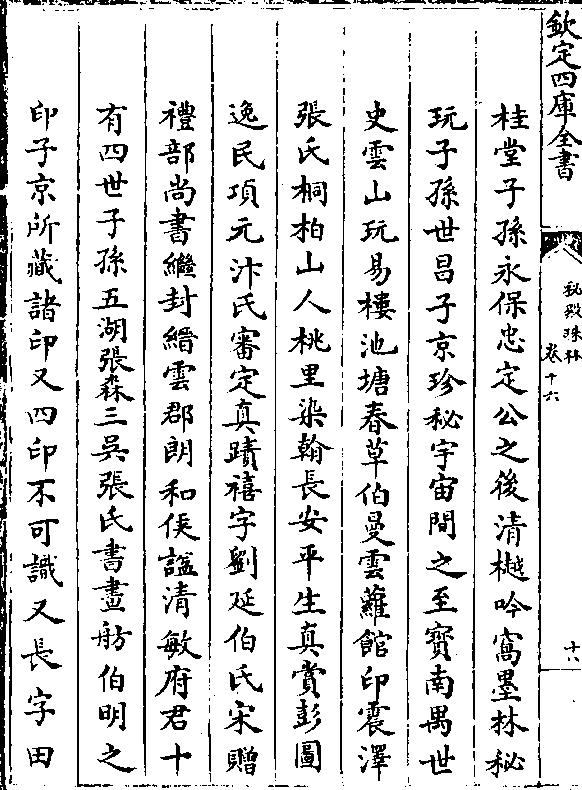 欽定四庫全書
秘殿珠林
卷十六
十八
桂堂子孫永保忠定公之後清樾吟窩墨林秘
玩子孫世昌子京珍秘宇宙間之至寳南禺世
史雲山玩易樓池塘春草伯曼雲蘿館印震澤
張氏桐柏山人桃里染翰長安平生真賞彭圖
逸民項元汴氏審定真蹟禧字劉延伯氏宋贈
禮部尚書繼封縉雲郡朗和侯諡清敏府君十
有四世子孫五湖張森三吳張氏書畫舫伯明之
印子京所藏諸印又四印不可識又長字田